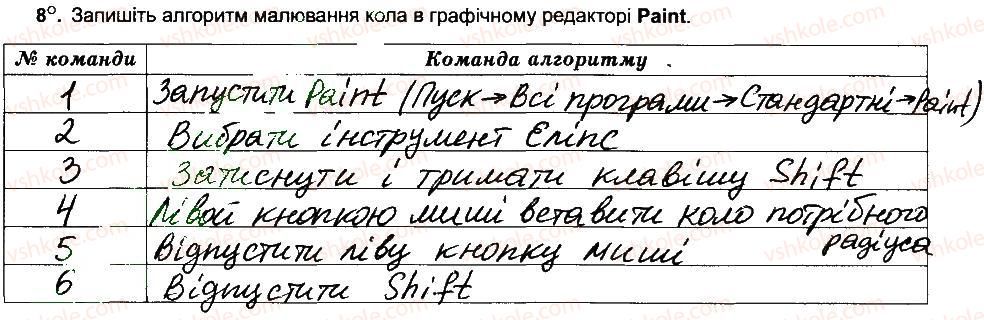 8°. Запишіть алгоритм малювання кола в графічному редакторі Paint.
№ команди Команда алгоритму
1 Запустити Paint (Пуск→Всі програми→Стандартні→Paint)
2 Вибрати інструмент Еліпс
3 Затиснути і тримати клавішу Shift
4 Лівой кнопкою миші вставити коло потрібного
радіуса
5 Відпустити ліву кнопку миші
6 Відпустити Shift